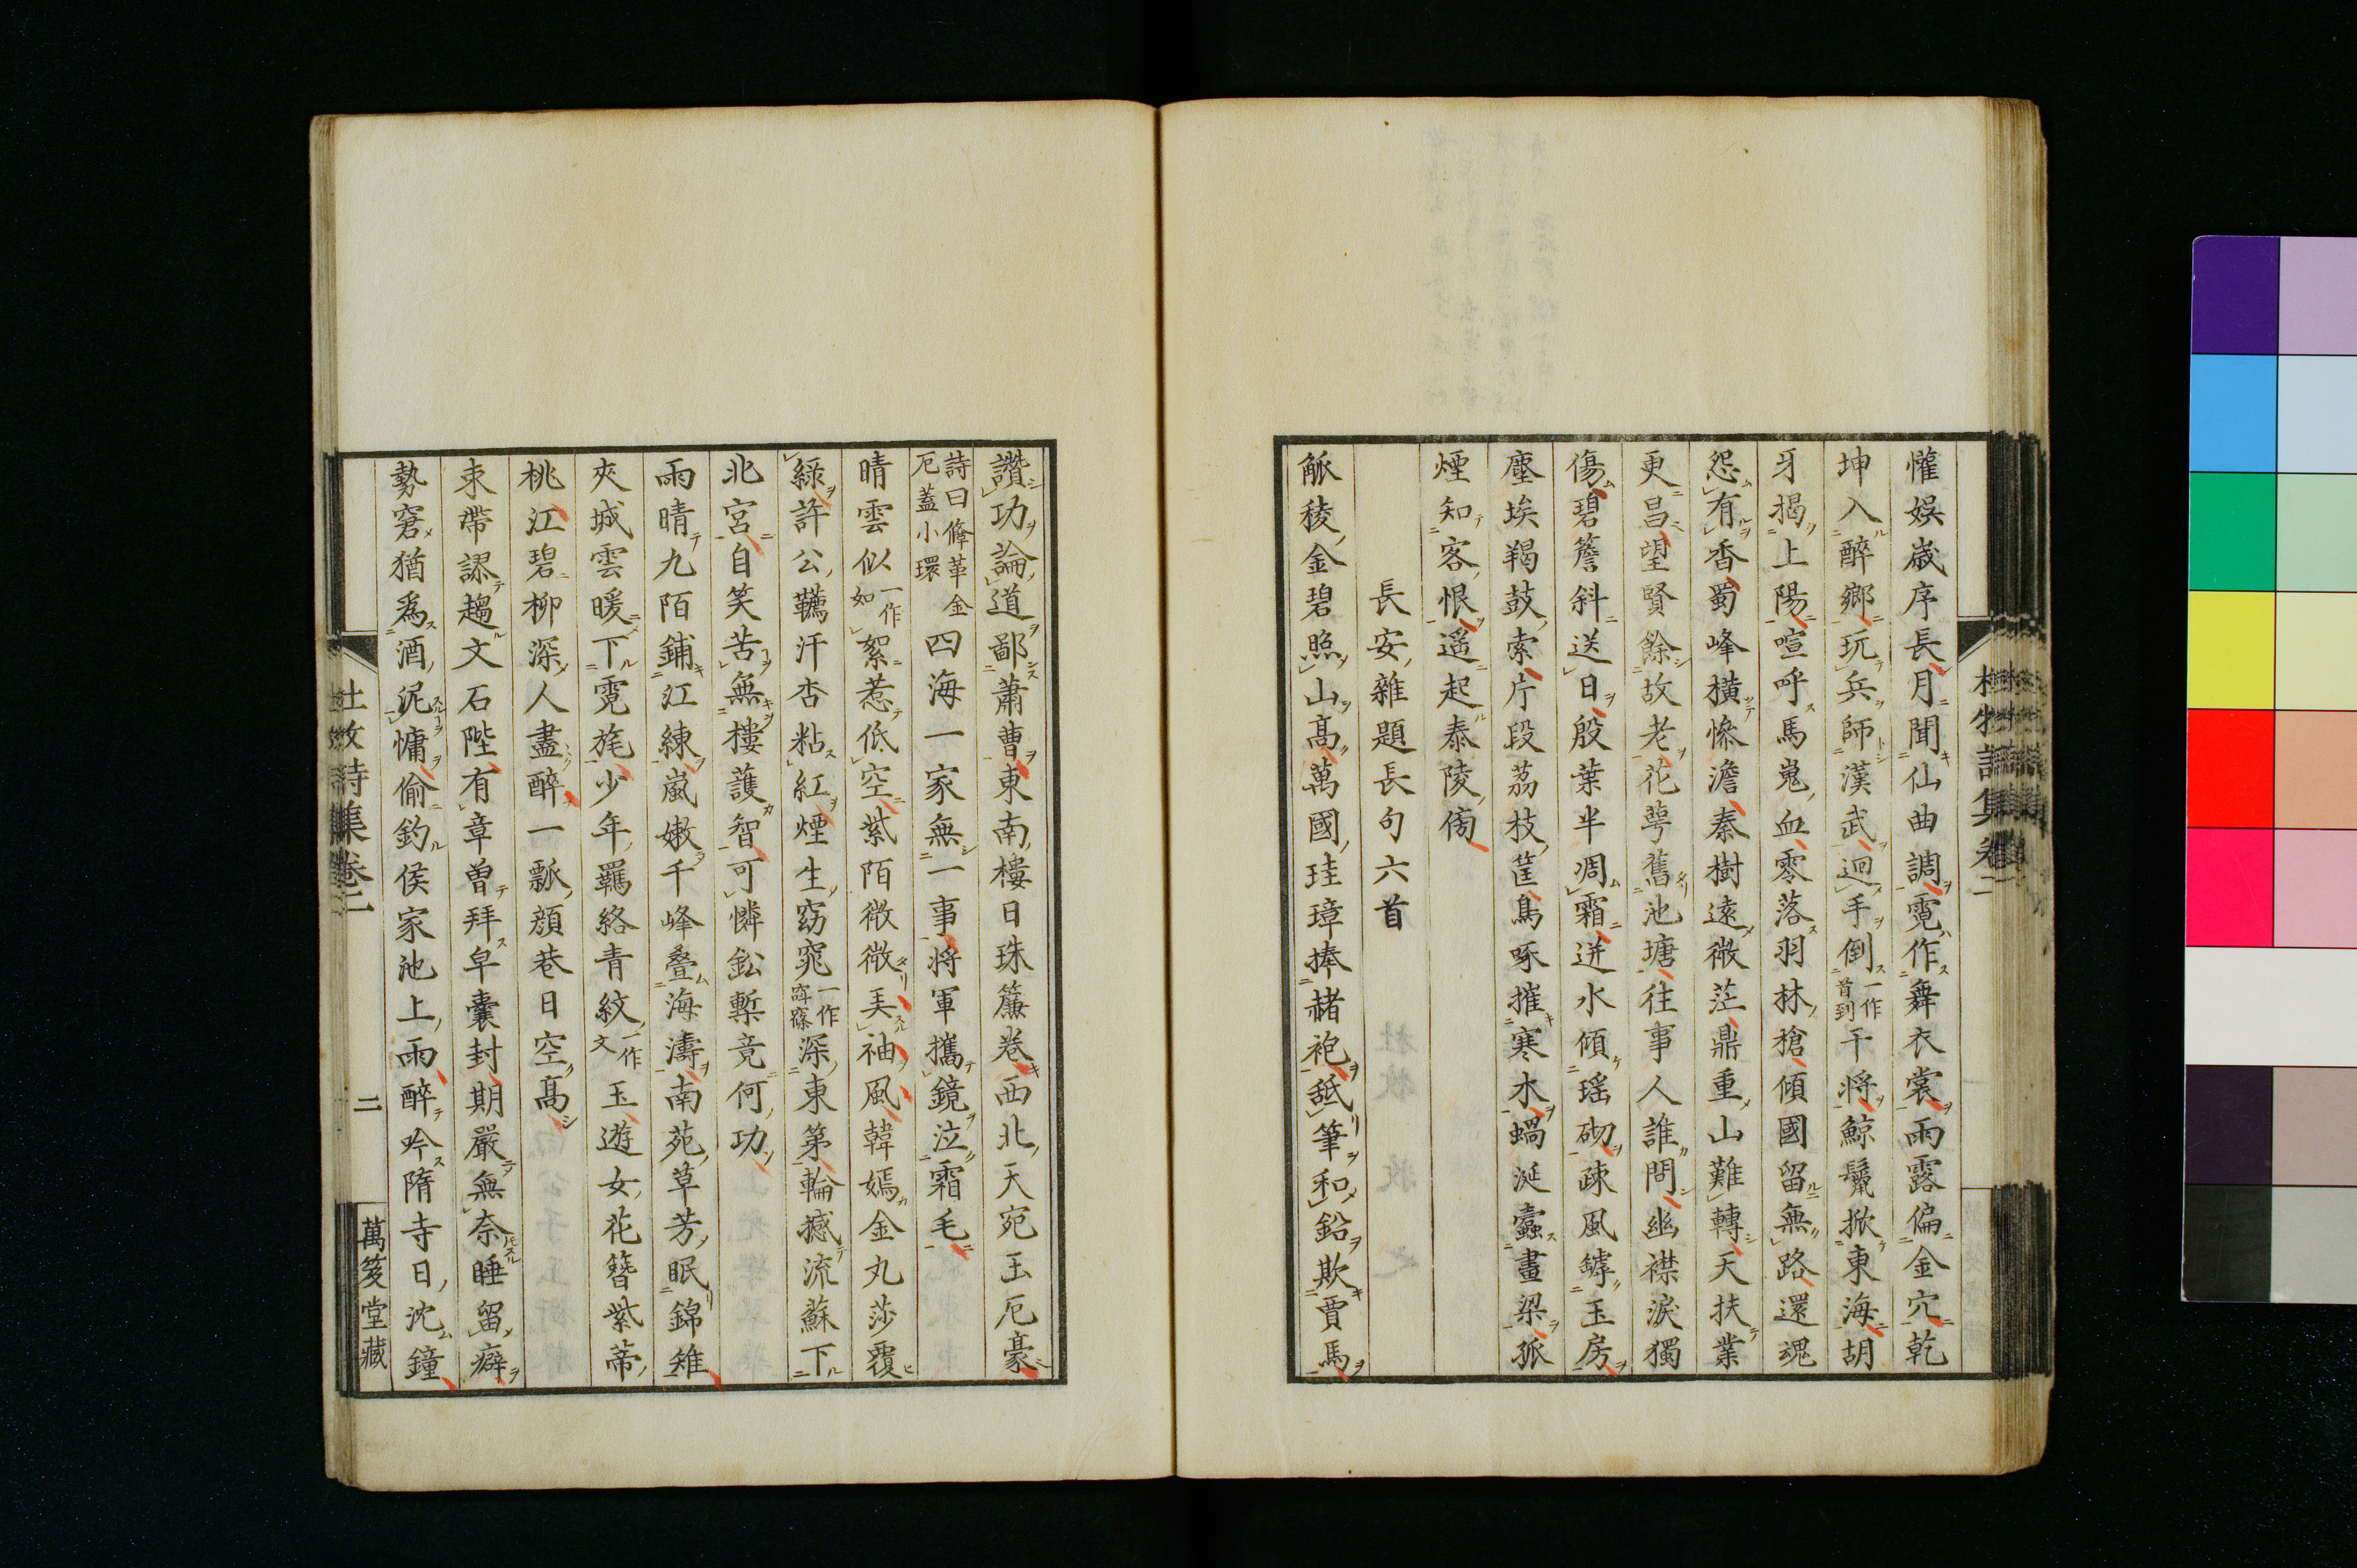 懽娯歳序長月聞仙曲調霓作舞衣裳雨露偏金穴乾
坤入醉鄉玩兵師漢武迴手倒一作首到干將鯨鬣掀東海胡
牙揭上陽喧呼馬嵬血零落羽林槍傾國留無路還魂
怨有香蜀峰橫慘澹秦樹遠微茫鼎重山難轉天扶業
更昌望賢餘故老花萼舊池塘往事人誰問幽襟淚獨
傷碧簷斜送日殷葉半凋霜迸水傾瑤砌疎風罅玉房
塵埃羯鼓索片段荔枝筐鳥啄摧寒木蝸涎蠹畫梁孤
煙知客恨遥起泰陵傍
長安雜題長句六首
觚稜金碧照山高萬國珪璋捧赭袍舐筆和鉛欺賈馬
讚功論道鄙蕭曹東南樓日珠簾卷西北天宛玉厄豪
詩曰鞗革金厄蓋小環四海一家無一事將軍攜鏡泣霜毛
晴雲似一作如絮惹低空紫陌微微弄袖風韓嫣金丸莎覆
綠許公韉汗杏粘紅煙生窈窕一作窄窱深東第輪撼流蘇下
北宮自笑苦無樓護智可憐鈆槧竟何功
雨晴九陌鋪江練嵐嫩千峰疊海濤南苑草芳眠錦雉
夾城雲暖下霓旄少年羈絡青紋一作文玉遊女花簪紫蔕
桃江碧柳深人盡醉一瓢顏巷日空高
束帶謬趨文石陛有章曾拜皁囊封期嚴無奈睡留癖
勢窘猶爲酒泥慵偷釣侯家池上雨醉吟隋寺日沈鐘
杜牧詩集卷二
二
萬笈堂藏